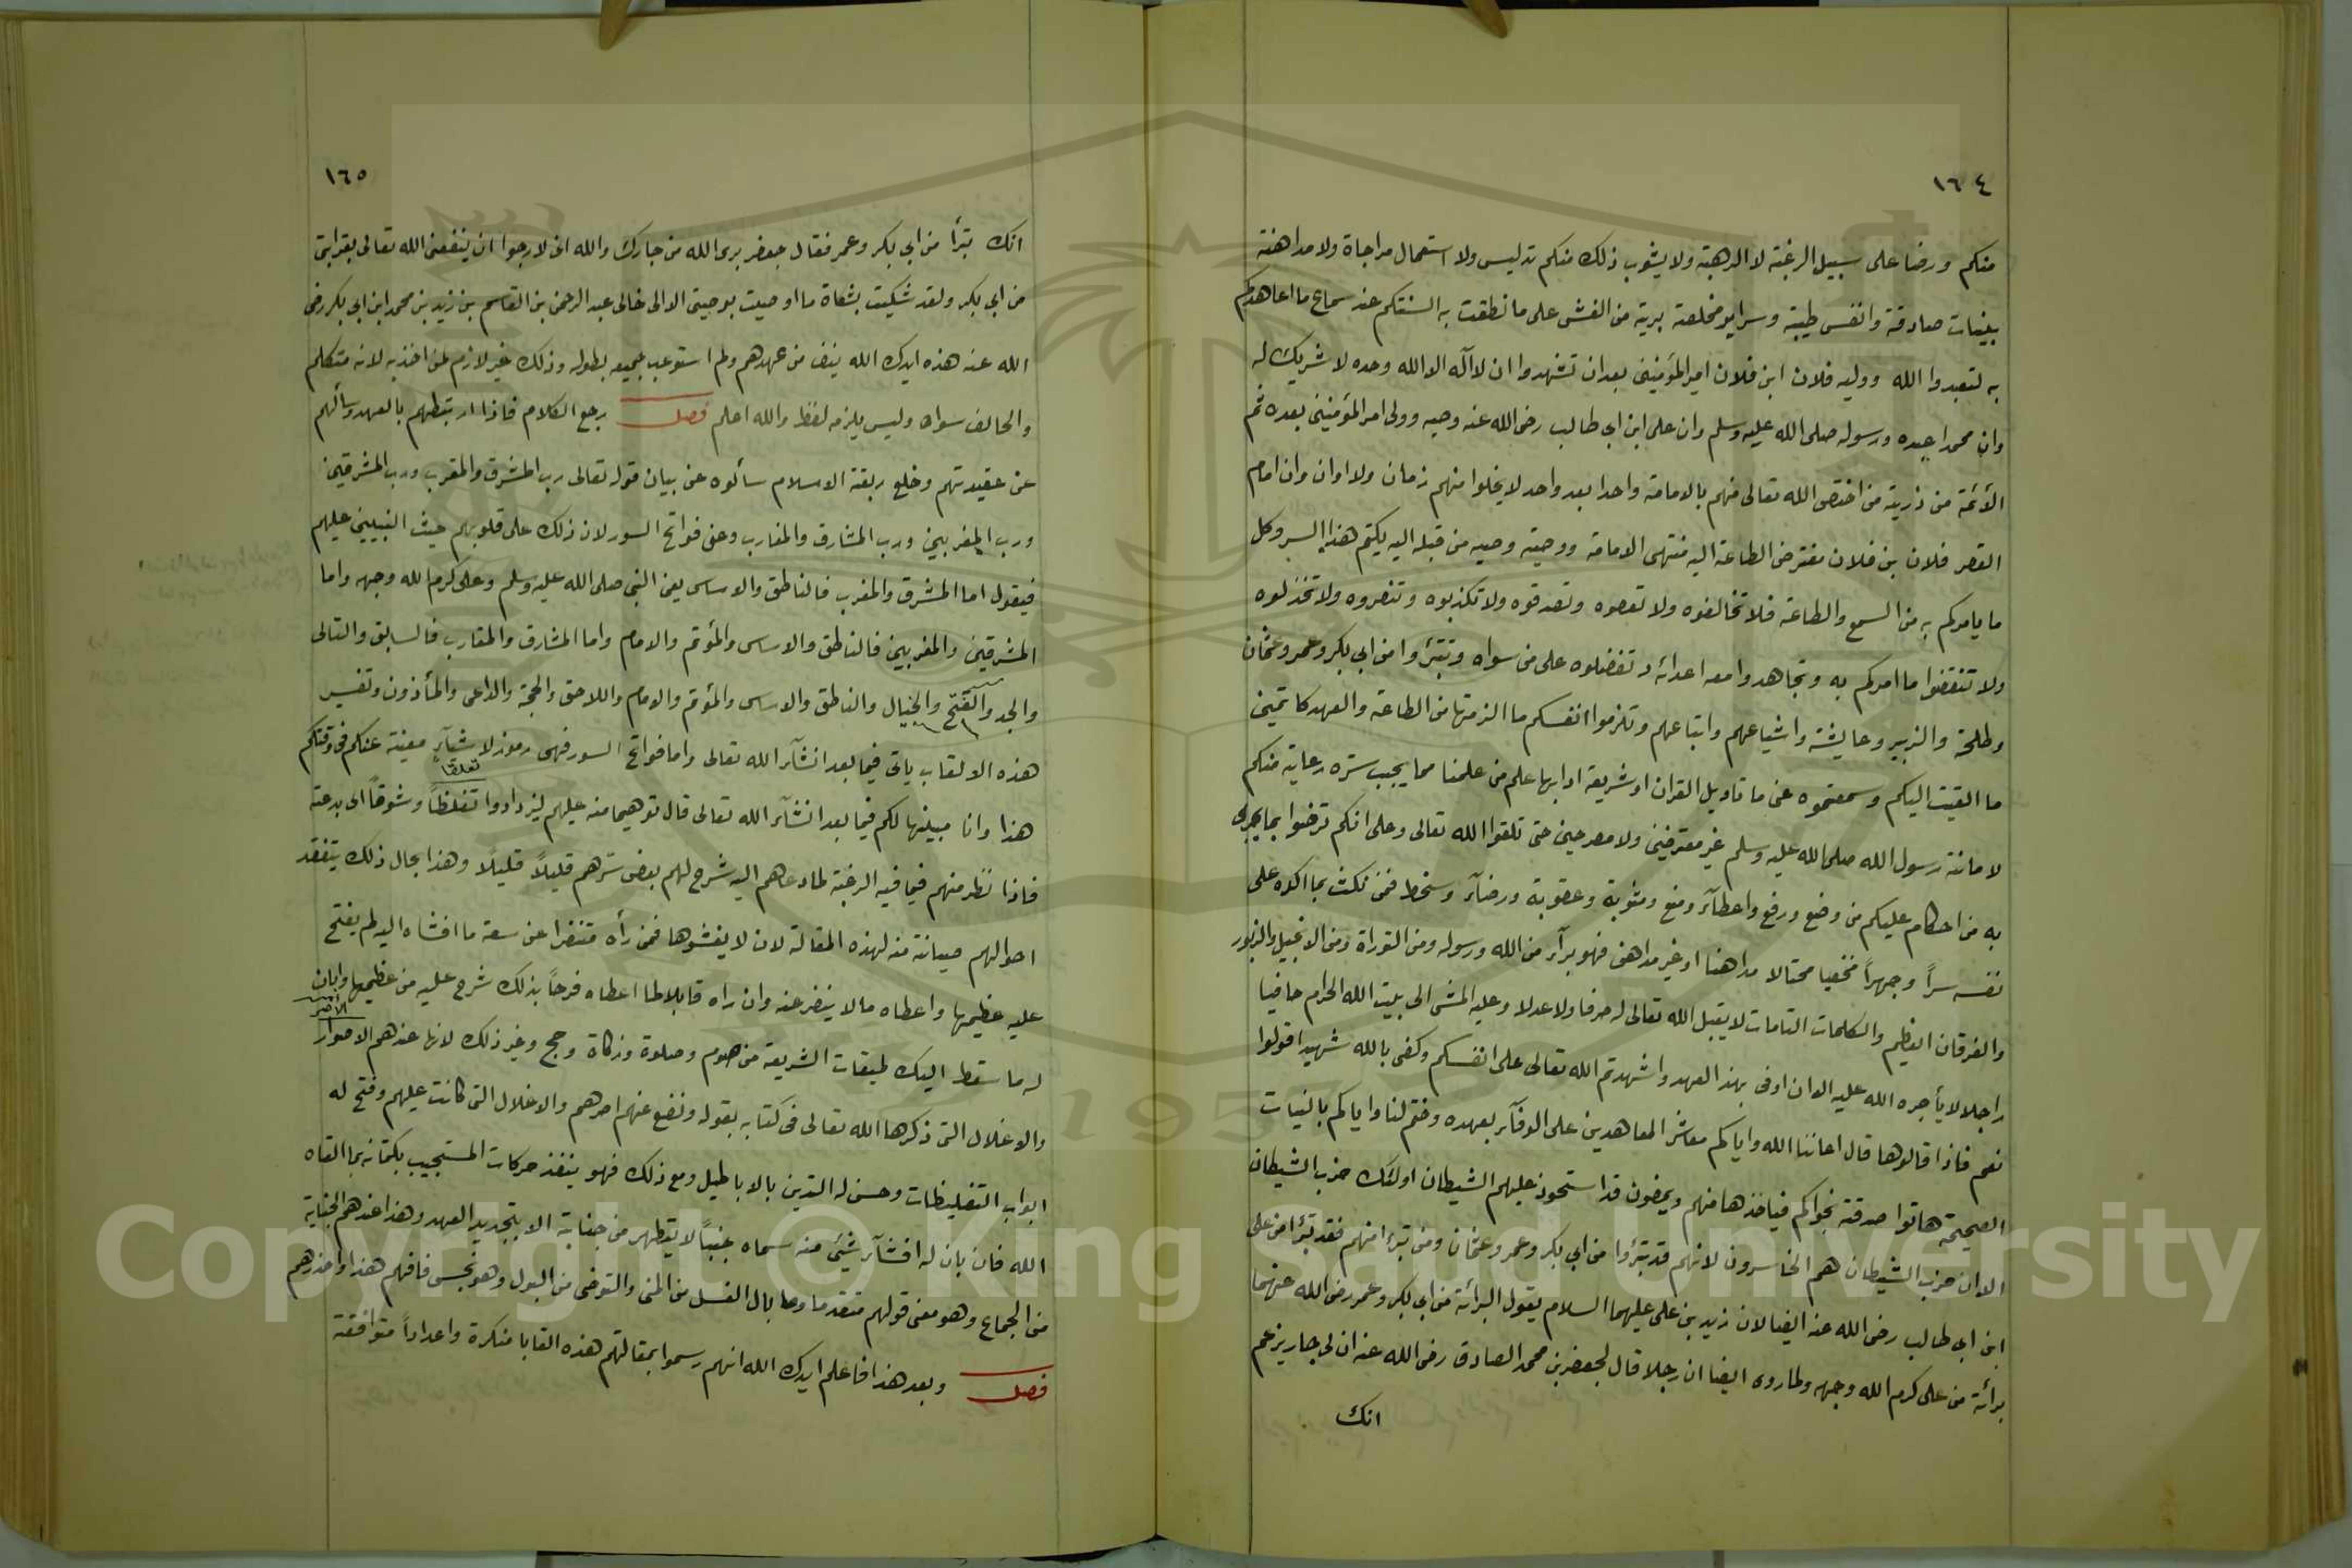 ١٦٤
منكم ورضا على سبيل الرغبة لا الرهبة ولا يشوب ذلك منكم تدليس ولا استعمال مراجاة ولا مداهنة
بنيات صادقة وانفس طيبة وسراير مخلصة برية من الغش على ما نطقت به السنتكم عند سماع ما اعاهدكم
به لتعبدوا الله ووليه فلان ابن فلان امير المؤمنين بعد ان تشهدوا ان لا اله الا الله وحده لا شريك له
وان محمدا عبده ورسوله صلى الله عليه وسلم وان على ابن ابى طالب رضى الله عنه وصيه وولى امر المؤمنين بعده ثم
الأئمة من ذريته من اختص الله تعالى منهم بالامامة واحدا بعد واحد لا يخلوا منهم زمان ولا اوان وان امام
العصر فلان بن فلان مفترض الطاعة اليه منتهى الامامة ووصية وصيه من قبله اليه يكتم هذا السر وكل
ما يامركم به من السمع والطاعة فلا تخالفوه ولا تعصوه وتصدقوه ولا تكذبوه وتنصروه ولا تخذلوه
ولا تنقضوا ما امركم به وتجاهدوا معه اعدائه وتفضلوه على من سواه وتتبرؤا من ابى بكر وعمر وعثمان
وطلحة والزبير وعايشة واشياعهم واتباعهم وتلزموا انفسكم ما الزمتها من الطاعة والعهد كاتمين
ما القيت اليكم وسمعتموه عنى ما تاويل القران او شريعة ادابها علم من علمنا مما يجب ستره رعاية منكم
لامانة رسول الله صلى الله عليه وسلم غير معترضين ولا مصرحين حتى تلقوا الله تعالى وعلى انكم ترضوا بما يجرى
به من احكام عليكم من وضع ورفع واعطآء ومنع ومثوبة وعقوبة ورضآء وسخط فمن نكث بما اكده على
نفسه سراً وجهراً مخفيا محتالا مداهنا او غير مداهن فهو برآء من الله ورسوله ومن التوراة ومن الانجيل والزبور
والفرقان العظيم والكلمات التامات لا يقبل الله تعالى له صرفا ولا عدلا وعليه المشى الى بيت الله الحرام حافيا
راجلا لا يأجره الله عليه الا ان اوفى بهذ العهد واشهدتم الله تعالى على انفسكم وكفى بالله شهيدا قولوا
نعم فاذا قالوها قال اعاننا الله واياكم معاشر المعاهدين على الوفآء بعهده وختم لنا واياكم بالنيات
الصحيحة هاتوا صدقة نجواكم فياخذها منهم ويمضون قد استحوذ عليهم الشيطان اولئك حزب الشيطان
الا ان حزب الشيطان هم الخاسرون لانهم قد تبرؤا من ابى بكر وعمر وعثمان ومن تبرء منهم فقد تبرء من على
ابن ابى طالب رضى الله عنه ايضا لان زيد بن على عليهما السلام يقول البرائة من ابى بكر وعمر رضى الله عنهما
برائة من على كرم الله وجهه ولما روى ايضا ان رجلا قال لجعفر بن محمد الصادق رضى الله عنه ان لى جار يزعم
انك
١٦٥
انك تبرأ من ابى بكر وعمر فقال جعفر برى الله من جارك والله انى لارجوا ان ينفعنى الله تعالى بقرابتى
من ابى بكر ولقد شكيت بشكاة ما اوصيت بوصيتى الا الى خالى عبد الرحمن بن القاسم بن زيد بن محمد ابن ابى بكر رضى
الله عنه هذه ايدك الله ينض من عهدهم ولم استوعب جميعه بطوله وذلك غير لازم لمن اخذ به لانه متكلم
والحالف سواه وليس يلزمه لفظ والله اعلم فصل رجع الكلام فاذا ارتبطهم بالعهد وسألهم
عن عقيدتهم وخلع ربقة الاسلام سألوه عن بيان قوله تعالى رب المشرق والمغرب ورب المشرقين
ورب المغربين ورب المشارق والمغارب وعن فواتح السور لان ذلك على قلوبهم حيث النبيين عليهم
فيقول اما المشرق والمغرب فالناطق والاساس يعنى النبى صلى الله عليه وسلم وعلى كرم الله وجهه واما
المشرقين والمغربين فالناطق والاساس والمؤتم والامام واما المشارق والمغارب فالسابق والتالى
والجد والفتح والخيال والناطق والاساس والمؤتم والامام واللاحق والحجة والداعى والمأذون وتفسير
هذه الالقاب ياتى فيما بعد انشآء الله تعالى واما فواتح السور فهى رموز لاشيآء مغيبة عنكم فى وقتكم
هذا وانا مبينها لكم فيما بعد انشآء الله تعالى قال توهيما منه عليهم ليزدادوا تغلظاً وشوقاً الى بدعته
تعلقا
فاذا نظر منهم فيما فيه الرغبة لما دعاهم اليه شرح لهم بعض سترهم قليلاً قليلاً وهذا بحال ذلك يتفقد
احوالهم صيانة منه لهذه المقالة لان لا يفشوها فمن رأه متنفرا عن سعة ما افشاه اليه لم يفتح
عليه عظيمها واعطاه ما لا ينفر عنه وان راه قابلا لما اعطاه فرحاً بذلك شرح عليه من عظيمها وابان
له ما سقط اليك طبقات الشريعة من صوم وصلوة وزكاة وحج وغير ذلك لانها عندهم الاصوار
الأصر
والاغلال التى ذكرها الله تعالى فى كتابه بقوله ونضع عنهم اصرهم والاغلال التى كانت عليهم وفتح له
ابواب التغليظات وحسن له التدين بالاباطيل ومع ذلك فهو ينفذ حركات المستجيب بكتمانه بما القاه
الله فان بان له افشآء شيئ منه سماه جنباً لا يتطهر من جنابة الا بتجديد العهد وهذا عندهم الجنابة
من الجماع وهو معنى قولهم متقدما وما بال الغسل من المنى والتوضى من البول وهو نجس فافهم هذا واحذرهم
فصل وبعد هذا فاعلم ايدك الله انهم رسموا بمقالتهم هذه القابا منكرة واعداداً متوافقة
Copyright © King Saud University
195